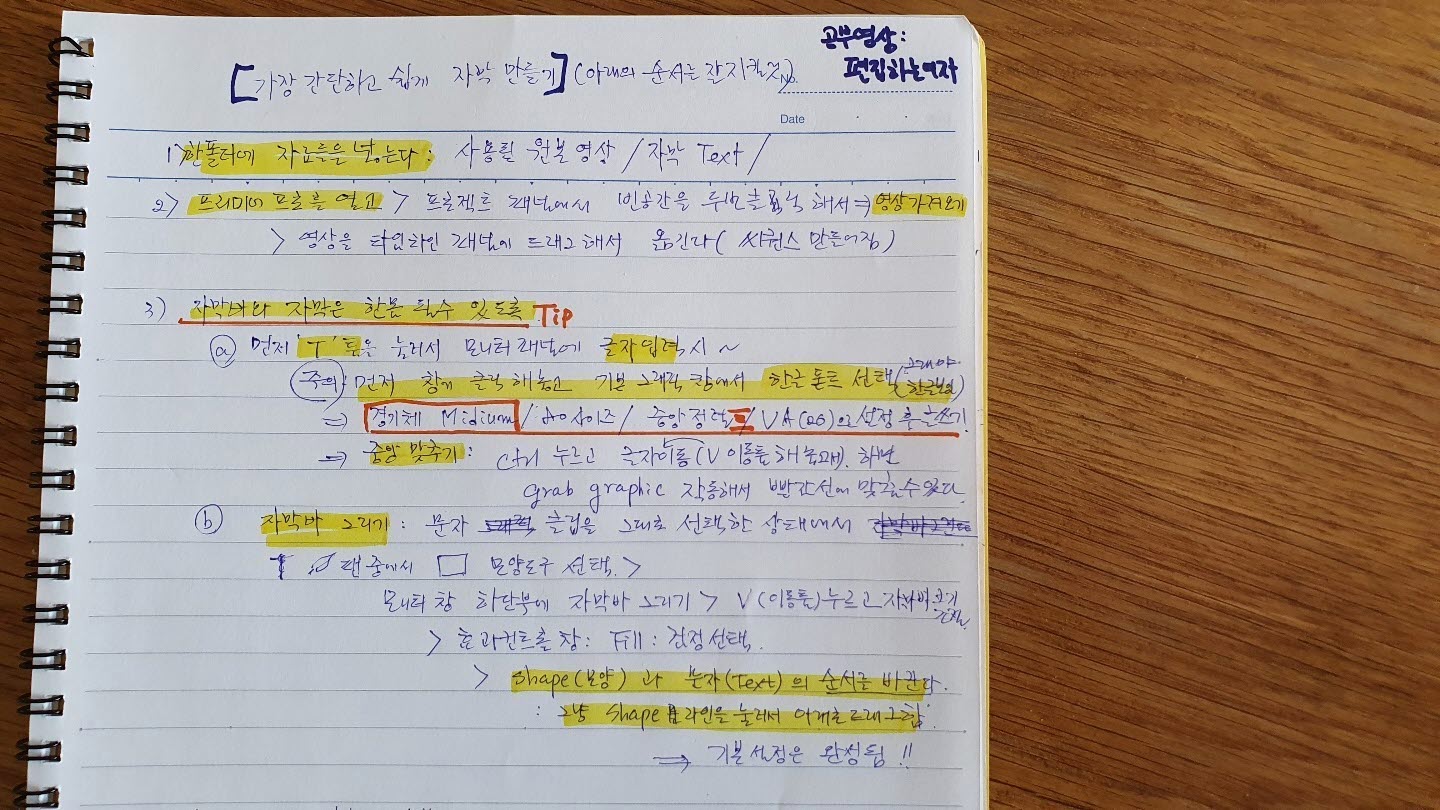 공부영상:
편집하는여자
[가장 간단하고 쉽게 자막 만들기] (아래의 순서는 잘 지킬것)
No.
Date
1> 한폴더에 자료들을 넣는다: 사용될 원본 영상 / 자막 Text /
2> 프리미어 프로를 열고 > 프로젝트 패널에서 빈공간을 두번클릭 해서 ⇒ 영상가져오기
> 영상을 타임라인 패널에 드래그해서 옮긴다 (씨퀀스 만들어짐)
3) 자막바와 자막은 한몸 될수 있도록 Tip
ⓐ 먼저 'T'툴을 눌러서 모니터패널에 글자입력시 ~
주의 먼저 창에 클릭해놓고 기본 그래픽 창에서 한글폰트 선택 (그래야 한글보임)
⇒ 경기체 Midium / 사이즈 / 중앙정렬 / VA(26)으로 설정 후 글쓰기
⇒ 중앙 맞추기: ctrl 누르고 글자이동 (V 이동툴 해놓고) 하면
grab graphic 작동해서 빨간선에 맞출수있다.
ⓑ 자막바 그리기: 문자 클립을 그대로 선택한 상태에서
펜중에서 □ 모양도구 선택 >
모니터 창 하단부에 자막바 그리기 > V(이동툴) 누르고 자막바 크기
> 효과컨트롤 창: Fill: 검정선택.
> Shape(모양) 과 문자(Text) 의 순서를 바꾼다.
: 그냥 Shape 라인을 눌러서 아래로 드래그함
⇒ 기본설정은 완성됨 !!